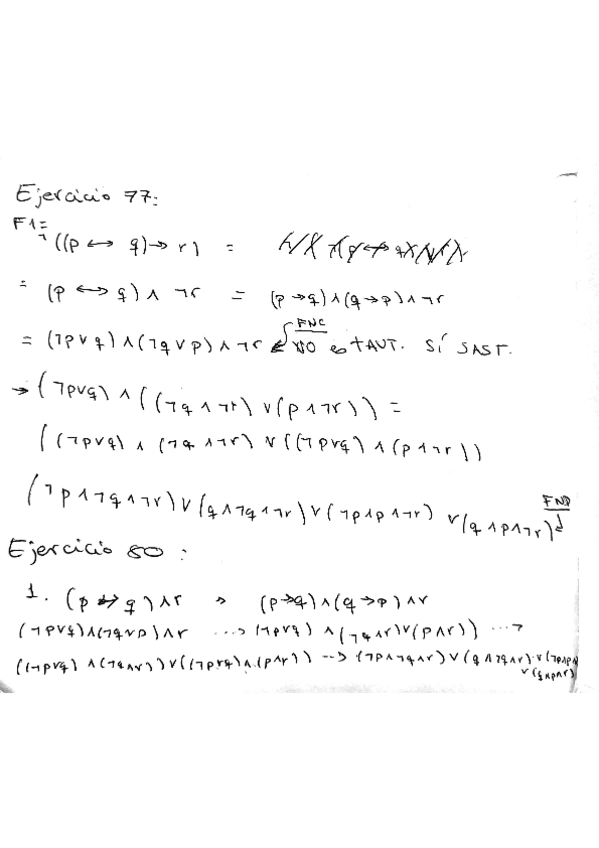 Ejercicio 77:
F1=
¬((p ↔ q) → r) =
= (p ↔ q) ∧ ¬r = (p → q) ∧ (q → p) ∧ ¬r
= (¬p ∨ q) ∧ (¬q ∨ p) ∧ ¬r FNC NO es TAUT. SÍ SAST.
→ (¬p∨q) ∧ ((¬q ∧ ¬r) ∨ (p ∧ ¬r)) =
((¬p∨q) ∧ (¬q ∧ ¬r) ∨ ((¬p∨q) ∧ (p ∧ ¬r))
(¬p ∧ ¬q ∧ ¬r) ∨ (q ∧ ¬q ∧ ¬r) ∨ (¬p ∧ p ∧ ¬r) ∨ (q ∧ p ∧ ¬r) FND
Ejercicio 80:
1. (p ↔ q) ∧ r → (p→q) ∧ (q→p) ∧ r
(¬p∨q) ∧ (¬q∨p) ∧ r ...→ (¬p∨q) ∧ (¬q∧r) ∨ (p∧r)) ...→
((¬p∨q) ∧ (¬q∧r)) ∨ ((¬p∨q) ∧ (p∧r)) --→ (¬p∧¬q∧r) ∨ (q∧¬q∧r) ∨ (¬p∧p∧
∨ (q∧p∧r)